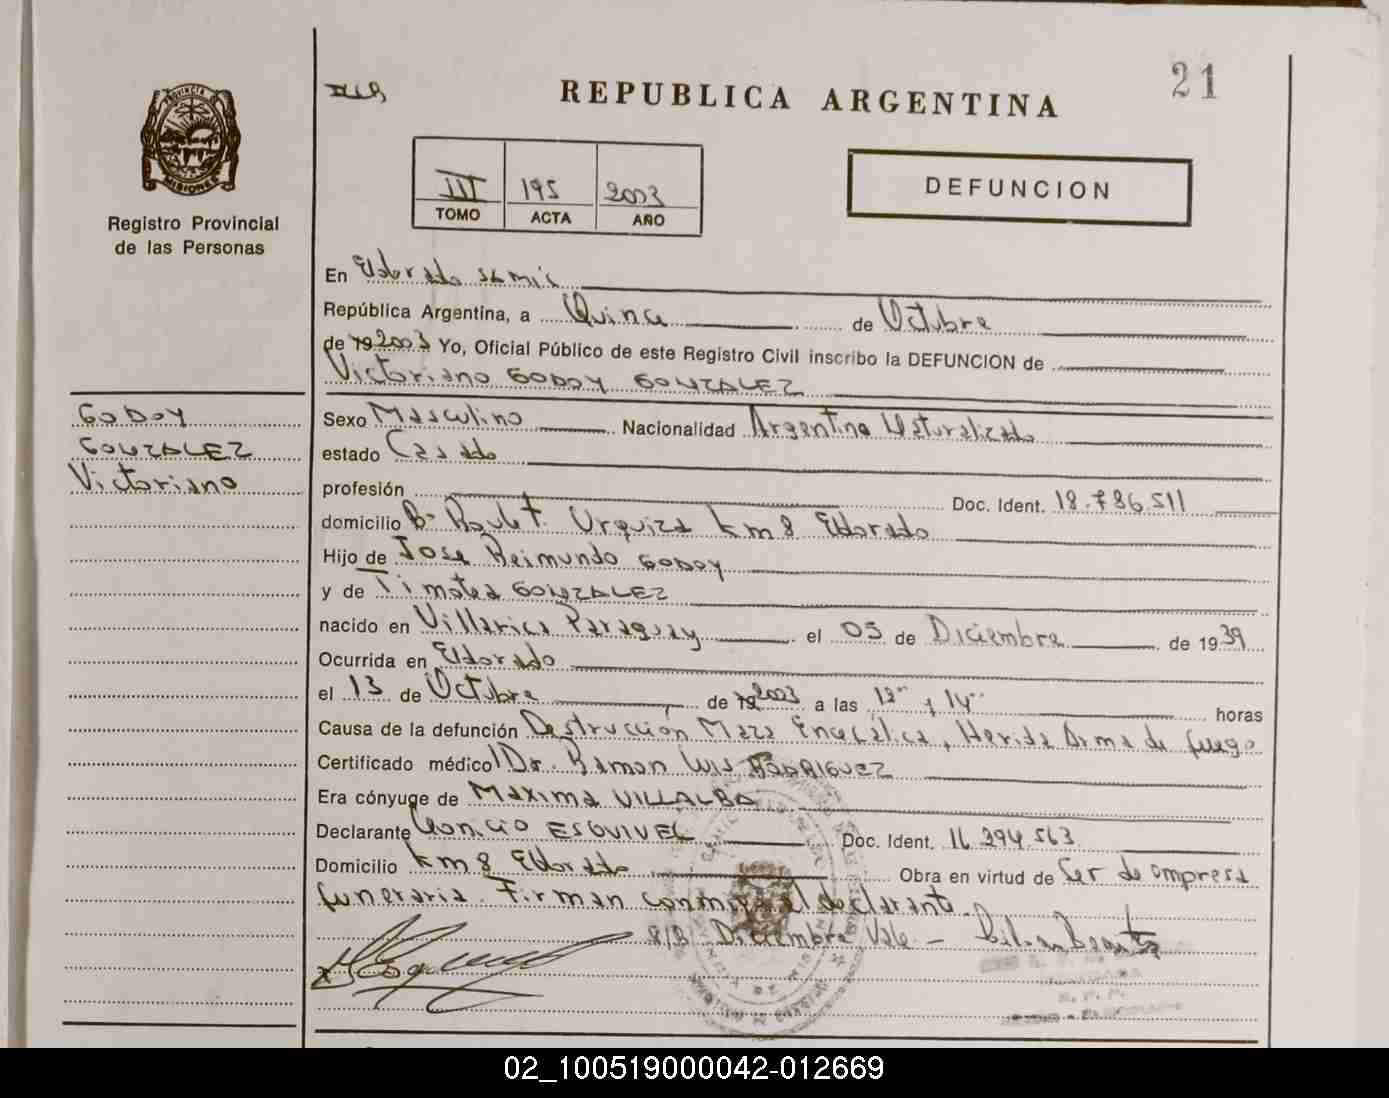 21
REPUBLICA ARGENTINA
PROVINCIA
MISIONES
Registro Provincial
de las Personas
III 195 2003
TOMO ACTA AÑO
DEFUNCION
GODOY
GONZALEZ
Victoriano
En Eldorado
República Argentina, a Quince de Octubre
de 19 2003 Yo, Oficial Público de este Registro Civil inscribo la DEFUNCION de
Victoriano GODOY GONZALEZ
Sexo Masculino Nacionalidad Argentino Naturalizado
estado Casado
profesión Doc. Ident. 18.786.511
domicilio Bº Urquiza Km 8 Eldorado
Hijo de Jose Reimundo GODOY
y de Timotea GONZALEZ
nacido en Villarica Paraguay el 05 de Diciembre de 1939
Ocurrida en Eldorado
el 13 de Octubre de 19 2003 a las y 14 horas
Causa de la defunción Destrucción Maza Encefalica, Herida Arma de fuego
Certificado médico Dr. Ramon Luis RODRIGUEZ
Era cónyuge de Maxima VILLALBA
Declarante Leoncio ESQUIVEL Doc. Ident. 16.294.563
Domicilio Km 8 Eldorado Obra en virtud de Ser de empresa
funeraria. Firman conmigo el declarante.
S/B Diciembre Vale -
02_100519000042-012669